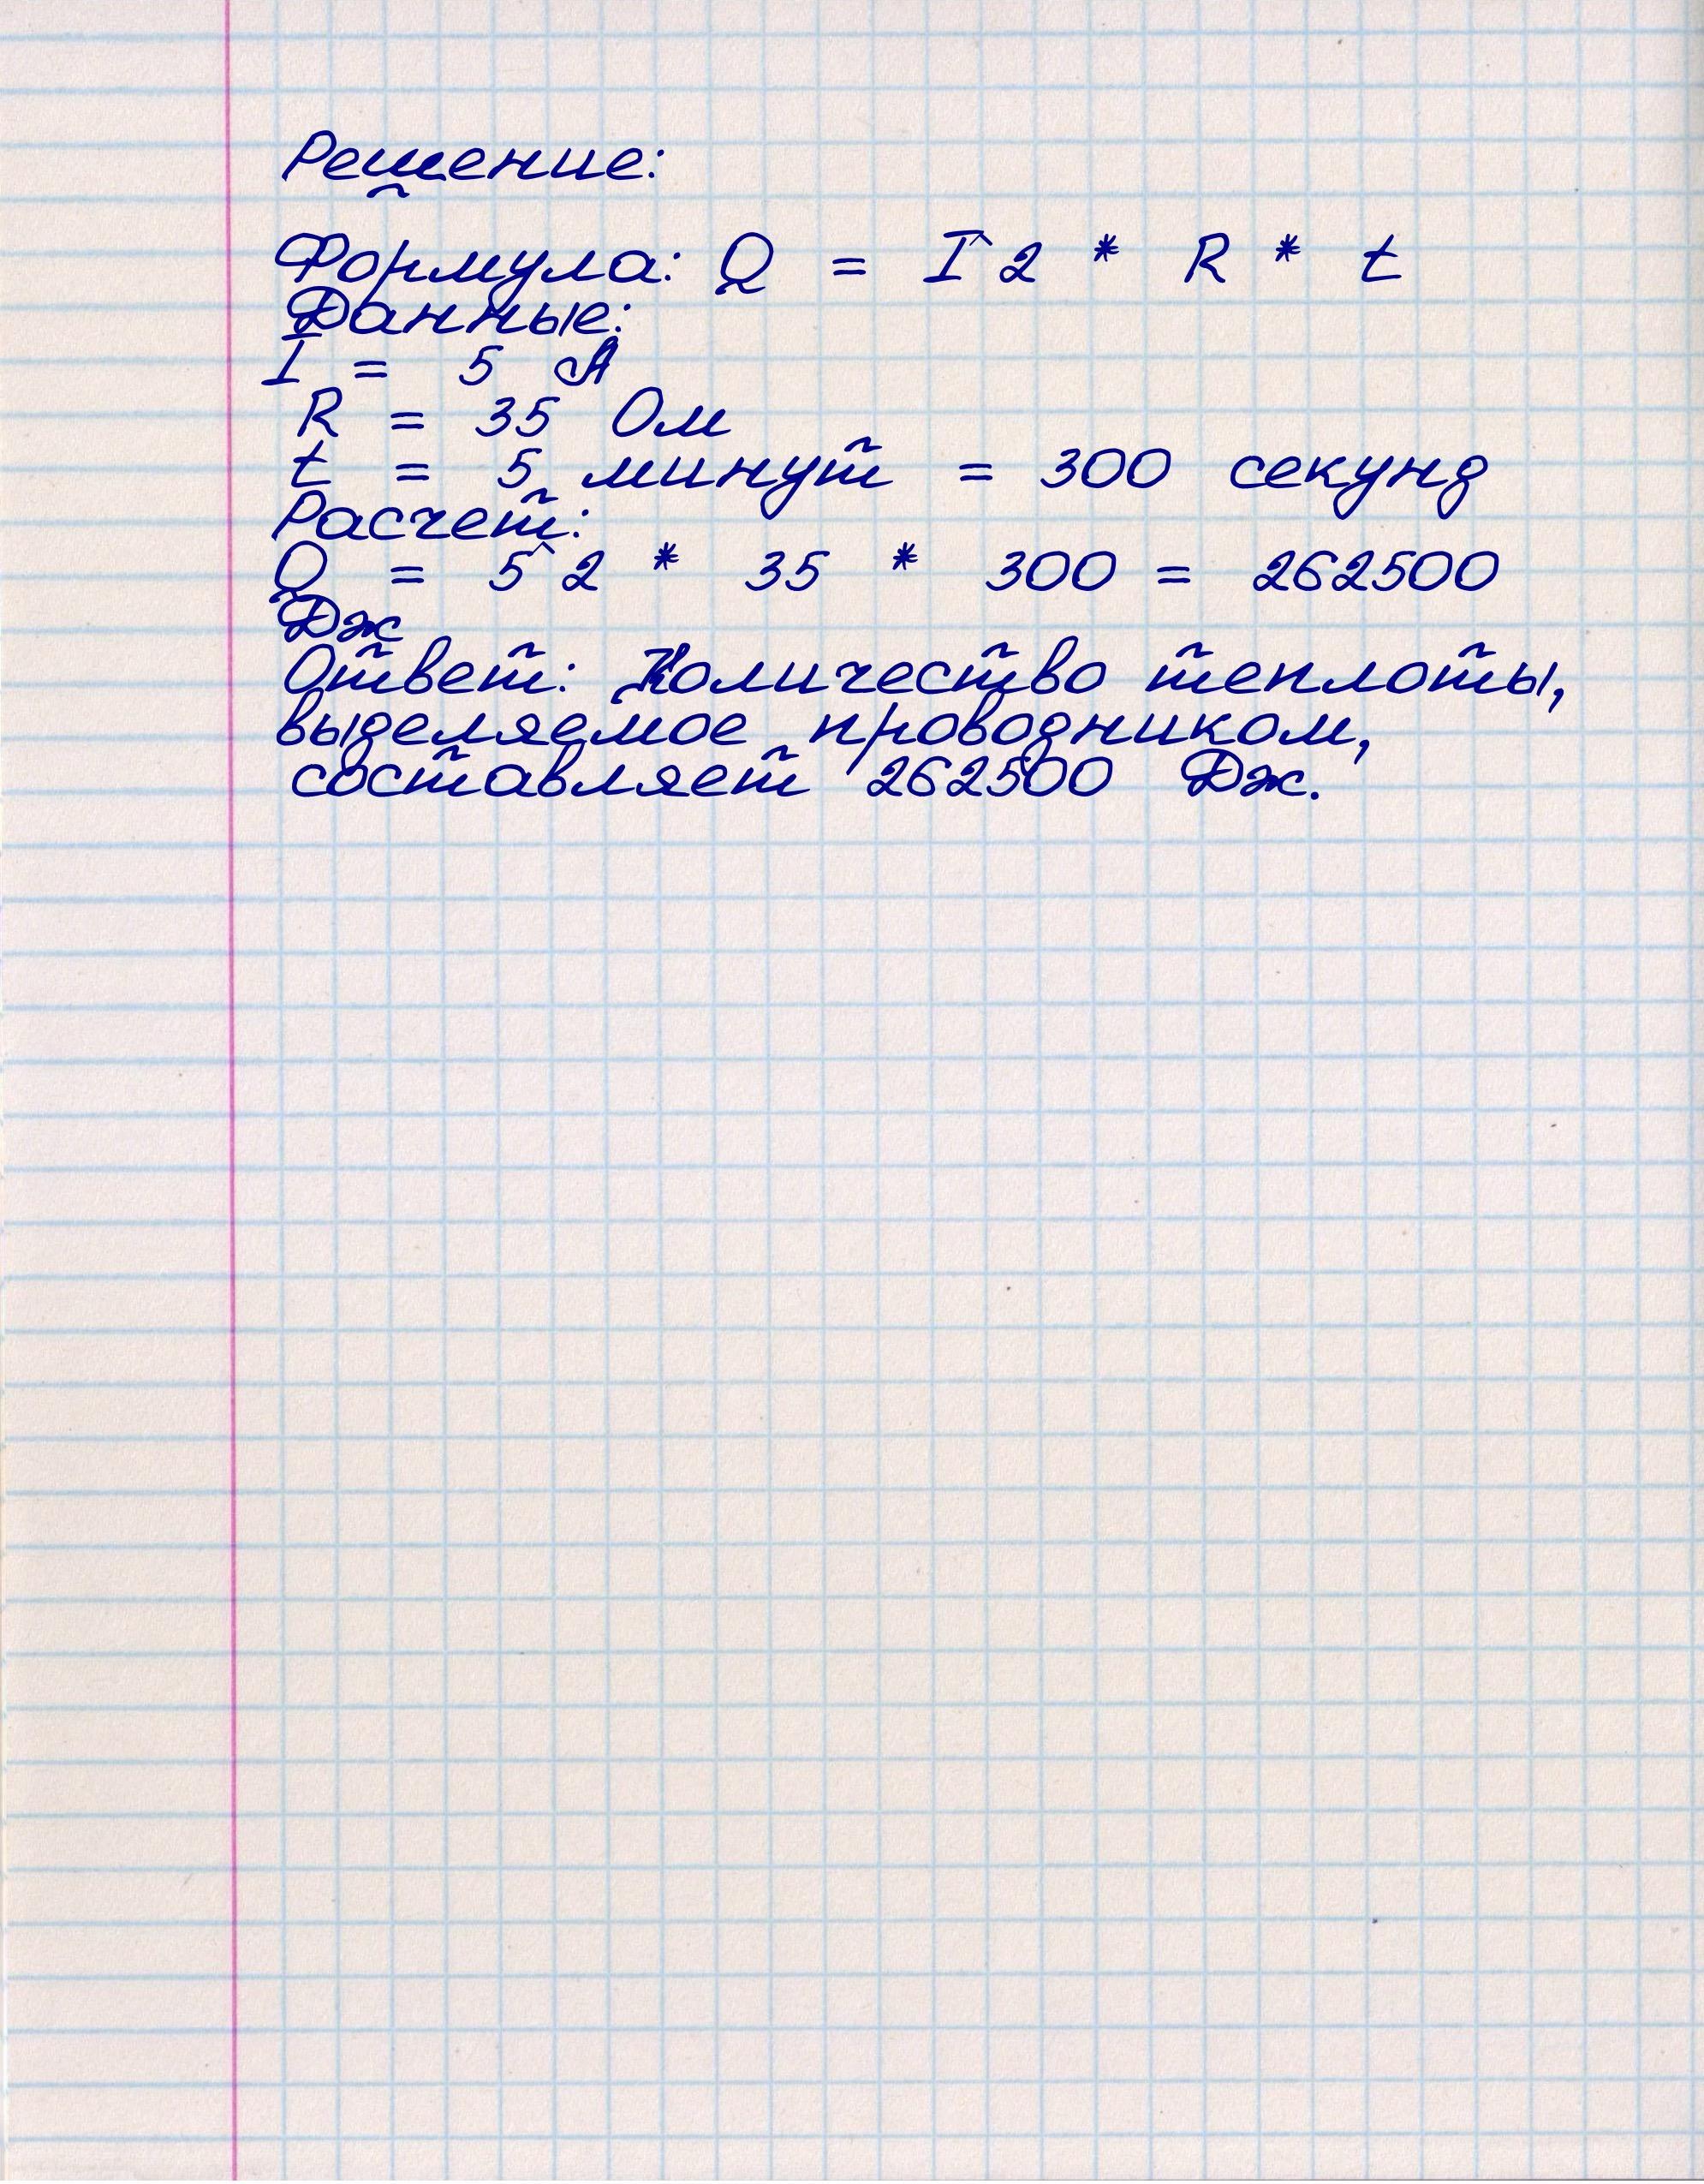 Решение:
Формула: Q = I^2 * R * t
Данные:
I = 5 А
R = 35 Ом
t = 5 минут = 300 секунд
Расчет:
Q = 5^2 * 35 * 300 = 262500
Дж
Ответ: Количество теплоты,
выделяемое проводником,
составляет 262500 Дж.